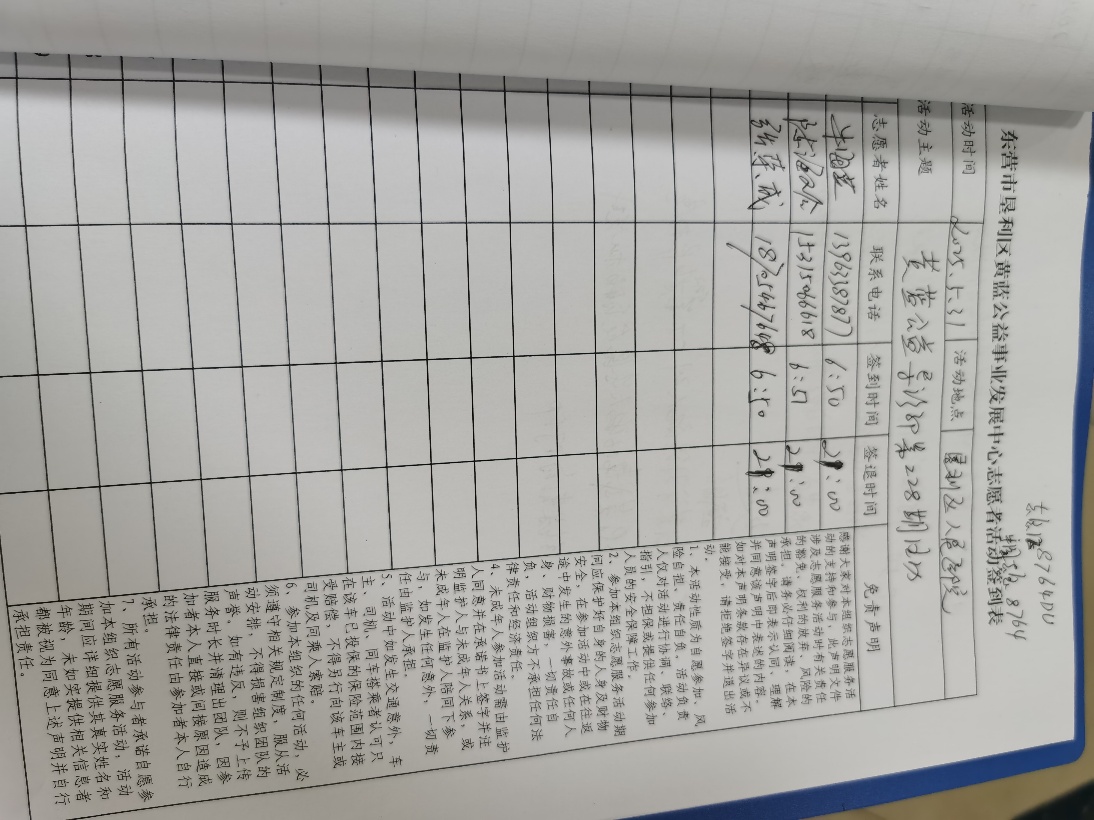 东营市垦利区黄蓝公益事业发展中心志愿者活动签到表
活动时间 2025.5.31 活动地点 垦利区人民医院
活动主题 黄蓝公益 第228期
志愿者姓名 联系电话 签到时间 签退时间 免责声明
13963387877 :50 :00
15315066618 6:51 :00
6:50 :00
感谢大家对本组织志愿服务活
动的支持和参与，此声明文件
涉及志愿服务活动时有关责任
的豁免、权利的放弃、风险的
承担。请务必仔细阅读，在本
声明签字后即表示认同、理解
并同意该声明中表述的内容。
如对本声明条款存在异议或不
能接受，请拒绝签字并退出活
动。
1、本活动性质为自愿参加、风
险自担、责任自负。活动负责
人仅对活动进行协调、联络、
指引，不担保或提供任何参加
人员的安全保障工作。
2、参加本组织志愿服务活动期
间应保护好自身的人身及财物
安全。在参加活动中或在往返
途中发生的意外事故或任何人
身、财物损害，一切责任自
负，活动组织方不承担任何法
律责任和经济责任。
4、未成年人参加活动需由监护
人同意并在承诺书上签字并注
明监护人与未成年人关系，或
未成年人在监护人陪同下参
与，如发生任何意外，一切责
任由监护人承担。
5、活动中如发生交通意外，车
主、司机、同车搭乘者认可只
在该车已投保的保险范围内接
受赔偿，不得另行向该车主或
司机及同乘人索赔。
6、参加本组织的任何活动，必
须遵守相关规定制度，服从活
动安排，不得损害组织团队的
声誉。如有违反，则不予上传
服务时长并清理出团队，因参
加者本人直接或间接原因造成
的法律责任由参加者本人自行
承担。
7、所有活动参与者承诺自愿参
加本组织志愿服务活动，活动
期间应详细提供其真实姓名和
年龄，未如实提供相关信息者
都被视为同意上述声明并自行
承担责任。